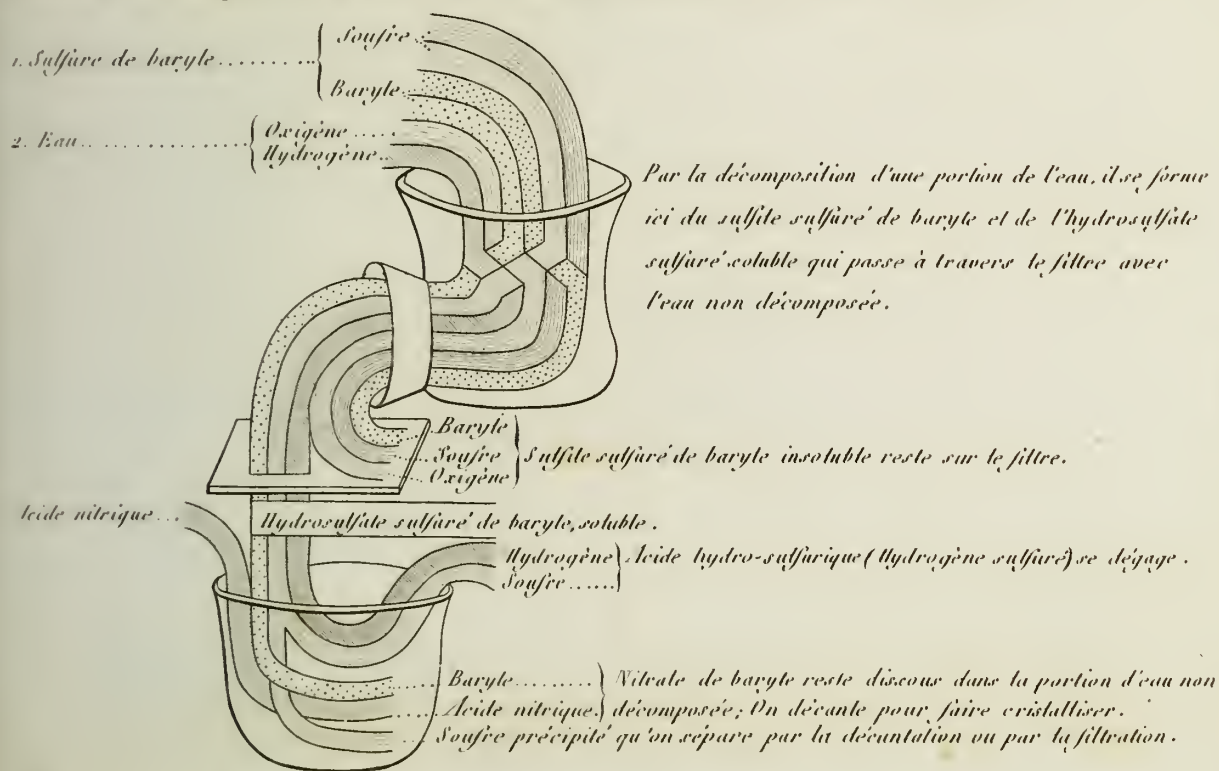 Soufre
1. Sulfure de baryte
Baryte
2. Eau
Oxigène
Hydrogène
Par la décomposition d'une portion de l'eau, il se forme
ici du sulfite sulfuré de baryte et de l'hydrosulfate
sulfuré soluble qui passe à travers le filtre avec
l'eau non décomposée.
Baryte
Soufre
Oxigène
Sulfite sulfuré de baryte insoluble reste sur le filtre.
Acide nitrique
Hydrosulfate sulfuré de baryte, soluble.
Hydrogène
Soufre
Acide hydro-sulfurique (Hydrogène sulfuré) se dégage.
Baryte
Acide nitrique.
Nitrate de baryte reste dissous dans la portion d'eau non
décomposée; On décante pour faire cristalliser.
Soufre précipité qu'on sépare par la décantation ou par la filtration.